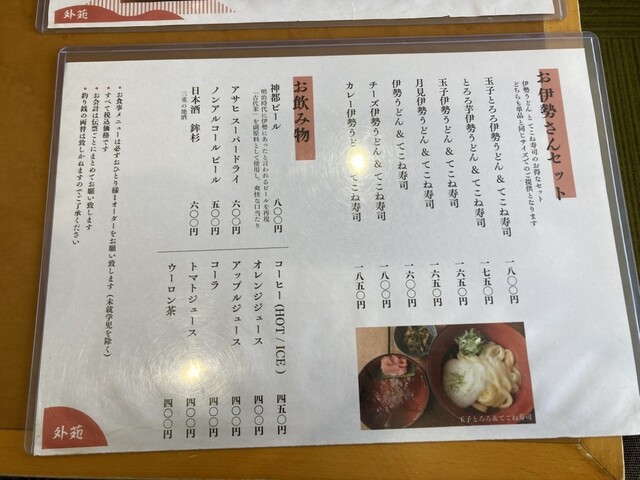 外苑
お伊勢さんセット
伊勢うどんとてこね寿司のお得なセット
どちらも単品と同じサイズでのご提供となります
玉子とろろ伊勢うどん & てこね寿司 一八〇〇円
とろろ芋伊勢うどん & てこね寿司 一七五〇円
玉子伊勢うどん & てこね寿司 一六五〇円
月見伊勢うどん & てこね寿司 一六五〇円
伊勢うどん & てこね寿司 一六〇〇円
チーズ伊勢うどん & てこね寿司 一八〇〇円
カレー伊勢うどん & てこね寿司 一八五〇円
玉子とろろ&てこね寿司
お飲み物
神都ビール 八〇〇円
明治時代に伊勢にあったと言われるビールを再現
「古代米」を副原料として使用し、爽快な口当たり
アサヒ スーパードライ 六〇〇円
ノンアルコールビール 五〇〇円
日本酒 鉾杉 六〇〇円
三重の地酒
コーヒー (HOT / ICE) 四五〇円
オレンジジュース 四〇〇円
アップルジュース 四〇〇円
コーラ 四〇〇円
トマトジュース 四〇〇円
ウーロン茶 四〇〇円
* お食事メニューは必ずおひとり様1オーダーをお願い致します (未就学児を除く)
* すべて税込価格です
* お会計は伝票ごとにまとめてお願い致します
* 釣り銭の両替は致しかねますのでご了承ください
外苑